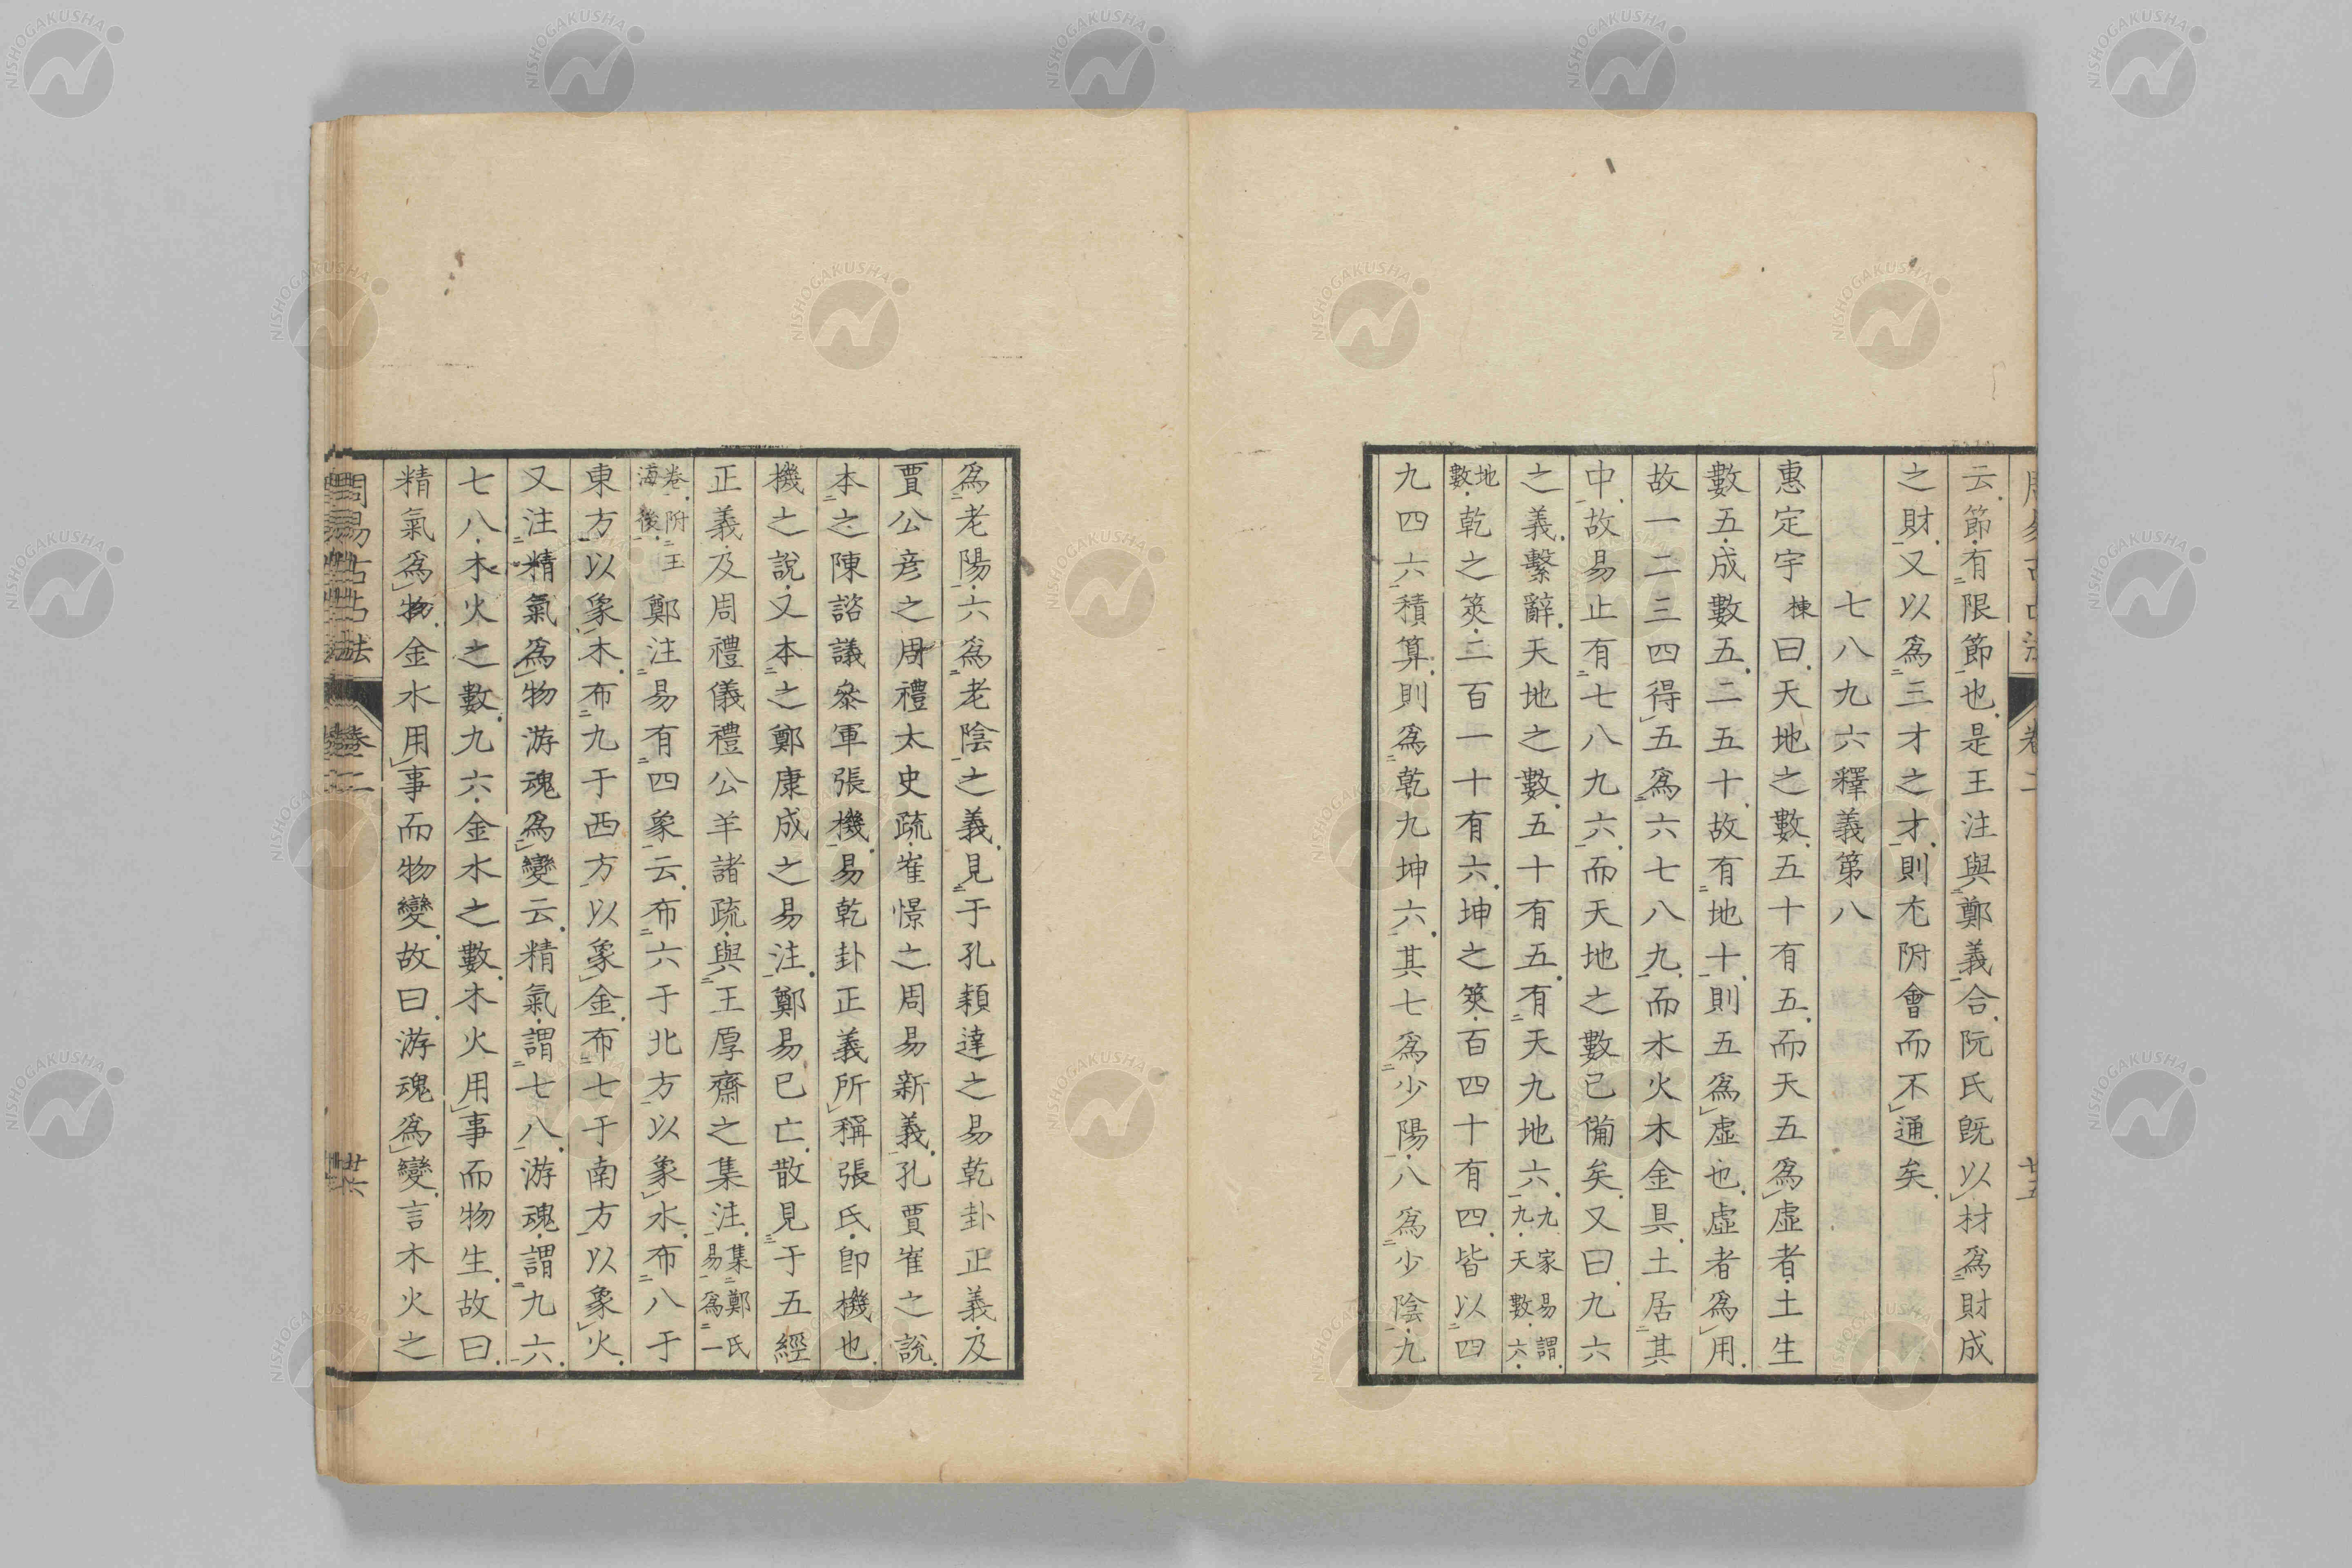 云節有限節也是王注與鄭義合阮氏既以材爲財成
之財又以爲三才之才則尤附會而不通矣
七八九六釋義第八
惠定宇棟曰天地之數五十有五而天五爲虛者土生
數五成數五二五十故有地十則五爲虛也虛者爲用
故一二三四得五爲六七八九而水火木金具土居其
中故易止有七八九六而天地之數已備矣又曰九六
之義繫辭天地之數五十有五有天九地六九家易謂九天數六
地數乾之筴二百一十有六坤之筴百四十有四皆以四
九四六積算則爲乾九坤六其七爲少陽八爲少陰九
爲老陽六爲老陰之義見于孔穎達之易乾卦正義及
賈公彦之周禮太史疏崔憬之周易新義孔賈崔之說
本之陳諮議參軍張機易乾卦正義所稱張氏卽機也
機之說又本之鄭康成之易注鄭易已亡散見于五經
正義及周禮儀禮公羊諸疏與王厚齋之集注集鄭氏易爲一
卷附王海後鄭注易有四象云布六于北方以象水布八于
東方以象木布九于西方以象金布七于南方以象火
又注精氣爲物游魂爲變云精氣謂七八游魂謂九六
七八木火之數九六金水之數木火用事而物生故曰
精氣爲物金水用事而物變故曰游魂爲變言木火之
周易古占法 卷二 廿六